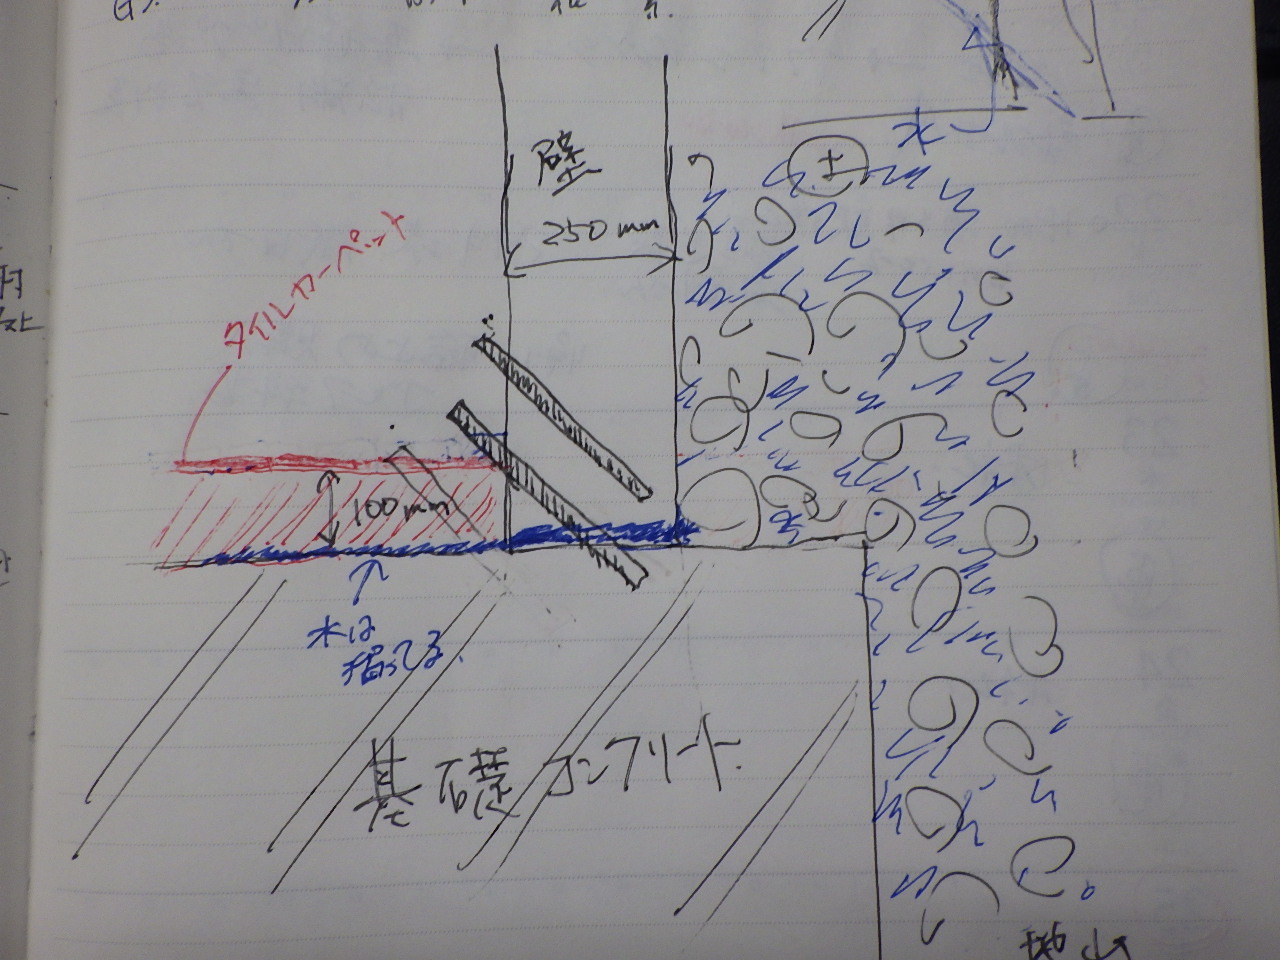 水
土
壁
250mm
タイルカーペット
100mm
水は
溜ってる.
基礎コンクリート
地山